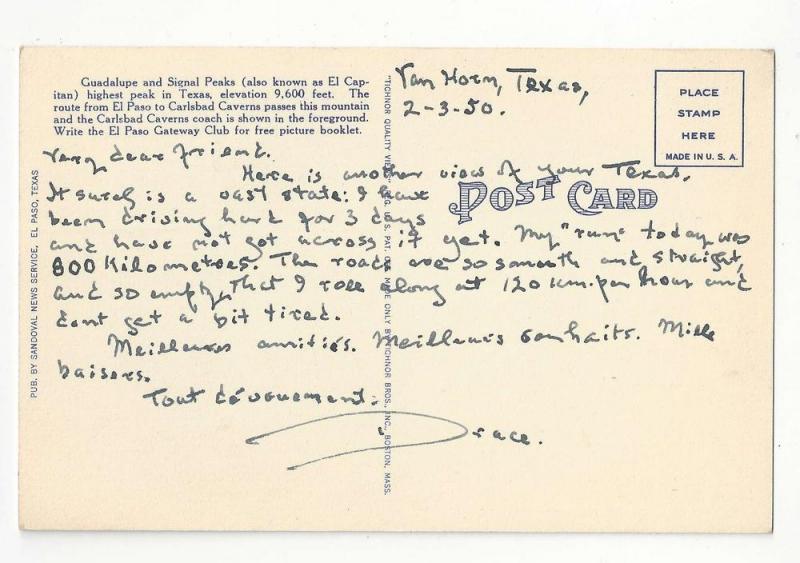 Guadalupe and Signal Peaks (also known as El Cap-
itan) highest peak in Texas, elevation 9,600 feet. The
route from El Paso to Carlsbad Caverns passes this mountain
and the Carlsbad Caverns coach is shown in the foreground.
Write the El Paso Gateway Club for free picture booklet.
Van Horn, Texas,
2-3-50.
PLACE
STAMP
HERE
MADE IN U. S. A.
POST CARD
Very dear friend.
Here is another view of your Texas.
It surely is a vast state: I have
been driving hard for 3 days
and have not got across it yet. My "run" today was
800 Kilometres. The roads are so smooth and straight,
and so empty, that I roll along at 120 km. per hour and
dont get a bit tired.
Meilleures amitiés. Meilleurs souhaits. Mille
baisers.
Tout dévouement:
PUB. BY SANDOVAL NEWS SERVICE, EL PASO, TEXAS
"TICHNOR QUALITY VIEWS" REG. U. S. PAT. OFF. MADE ONLY BY TICHNOR BROS., INC., BOSTON, MASS.